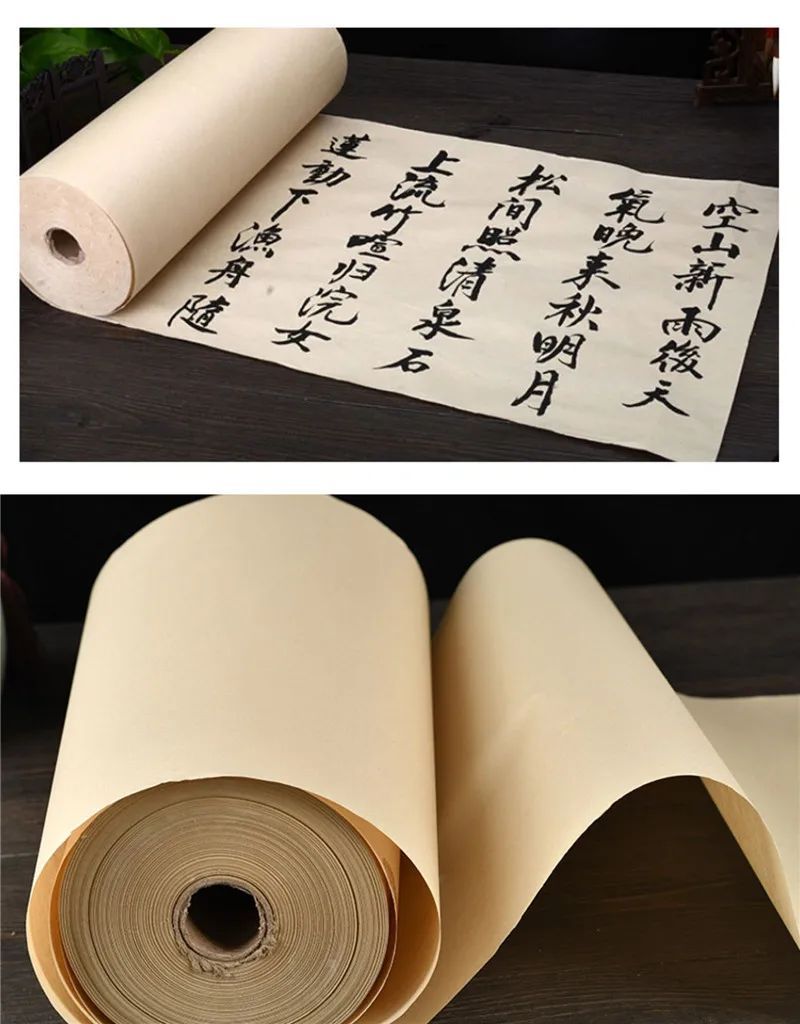 空山新雨後天
氣晚来秋明月
松间照清泉石
上流竹喧归浣女
蓮動下漁舟隨